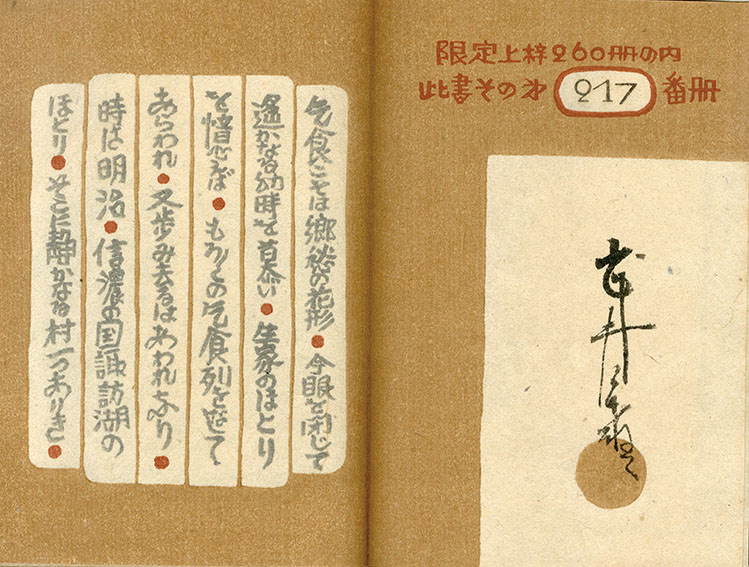 限定上梓260冊の内
此書その㐧217番冊
乞食こそは郷愁の花形●今眼を閉じて
遥かなる幼時を慕い●生家のほとり
を憶えば●もろ〱の乞食列を造て
あらわれ●又歩み去るはあわれなり●
時は明治●信濃の国諏訪湖の
ほとり●そこに静かなる村一つありき●